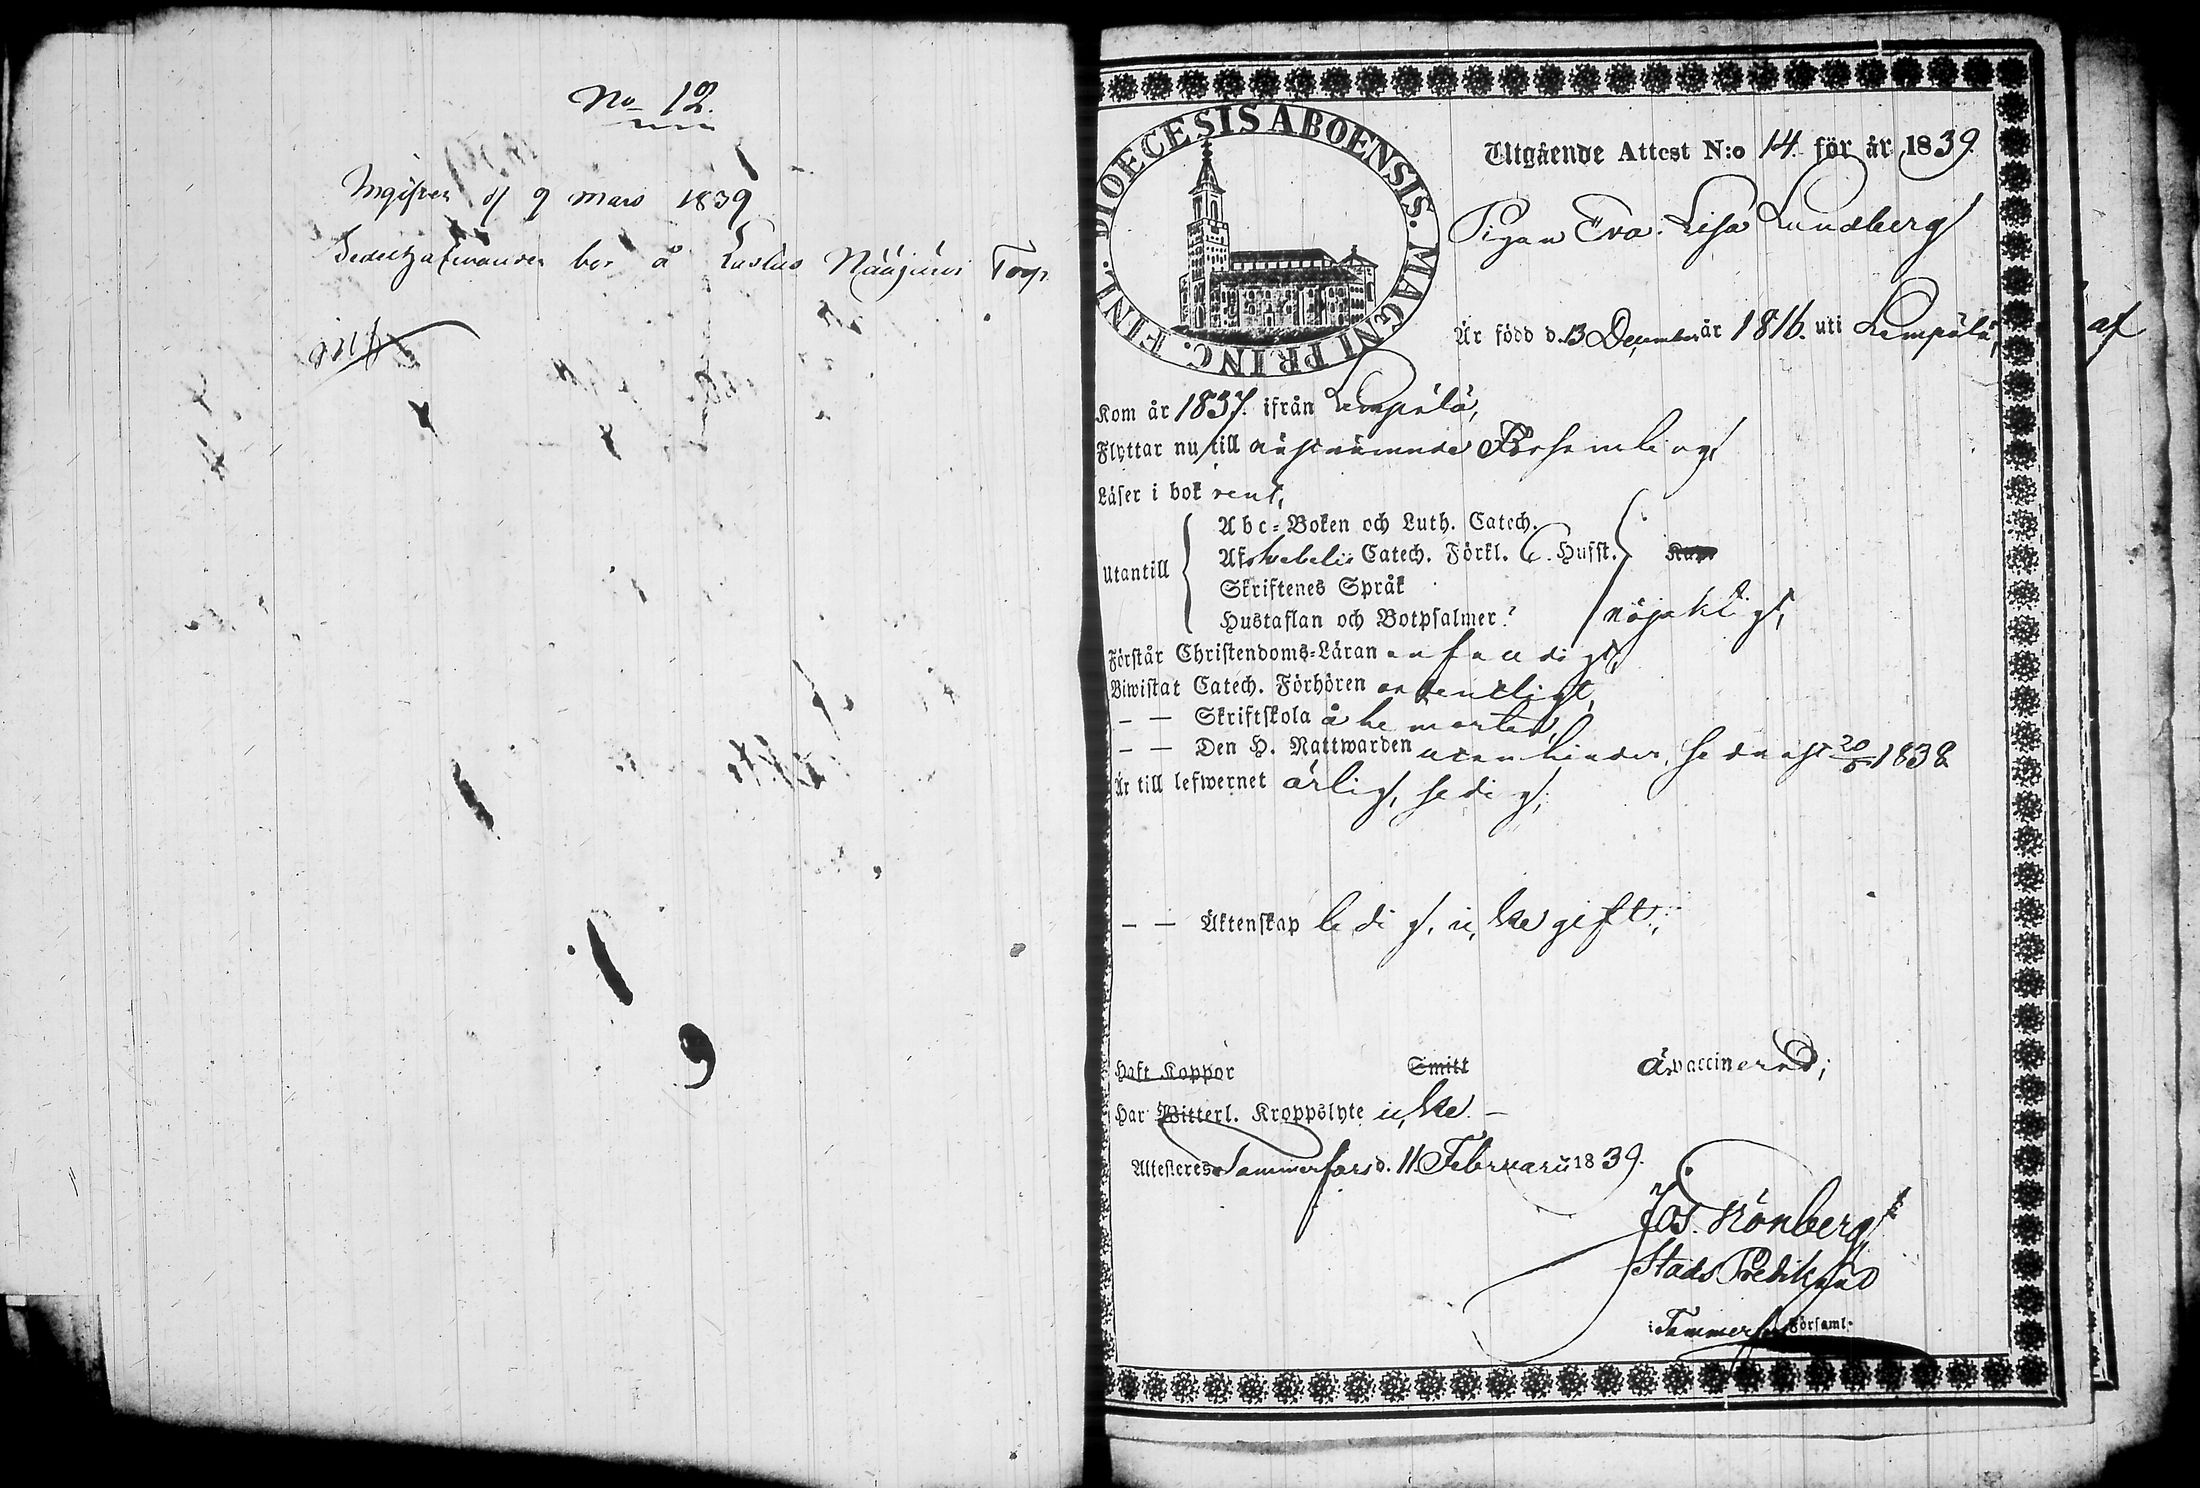 No 12.
Ingifven d 9 mars 1839
Sedelhafwanden bor å Torp
DIOECESIS ABOENSIS. MAGNI PRINC. FINL.
Utgående Attest N:o 14. för år 1839.
Pigan Eva Lisa Lundberg
Är född d. 13 December år 1816. uti Lempälä,
af
Kom år 1837. ifrån Lempälä,
Flyttar nu till näst nämnde Församling,
Läser i bok rent,
Abc-Boken och Luth. Catech.
Utantill
Af Svebelii Catech. Förkl. Husst.
Skriftenes Språk
Hustaflan och Botpsalmer.
nöjaktigt,
Förstår Christendoms-Läran enfaldigt,
Biwistat Catech. Förhören ordentligt,
— — Skriftskola
— — Den H. Nattwarden utan hinder, sednast 1838
Är till lefwernet ärlig, sedig,
— — Äktenskap ledig, icke gift,
Haft Koppor Smitt Är vaccinerad;
Har Witterl. Kroppslyte icke –
Attesteres Tammerfors d. 11. Februarii 1839.
Jos. Grönberg
Stads Predikand
i Tammerfors Församl.